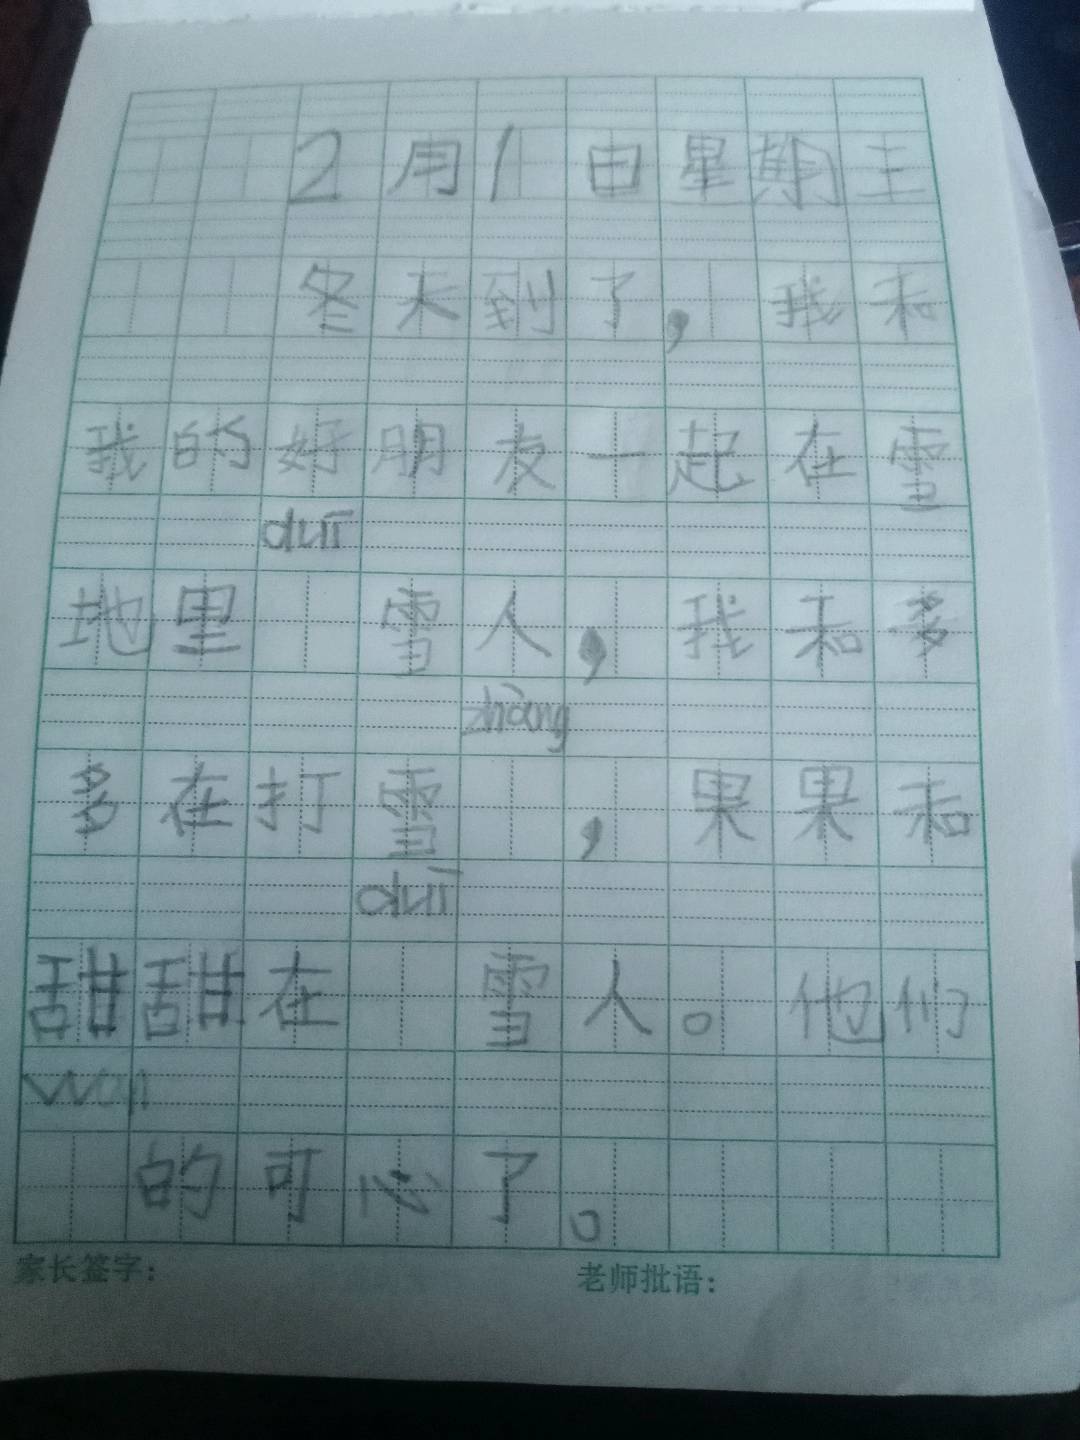 2月1日星期三
冬天到了,我和
我的好朋友一起在雪
duī
地里 雪人,我和多
zhàng
多在打雪 ,果果和
duī
甜甜在 雪人。他们
wán
的可心了。
家长签字: 老师批语: